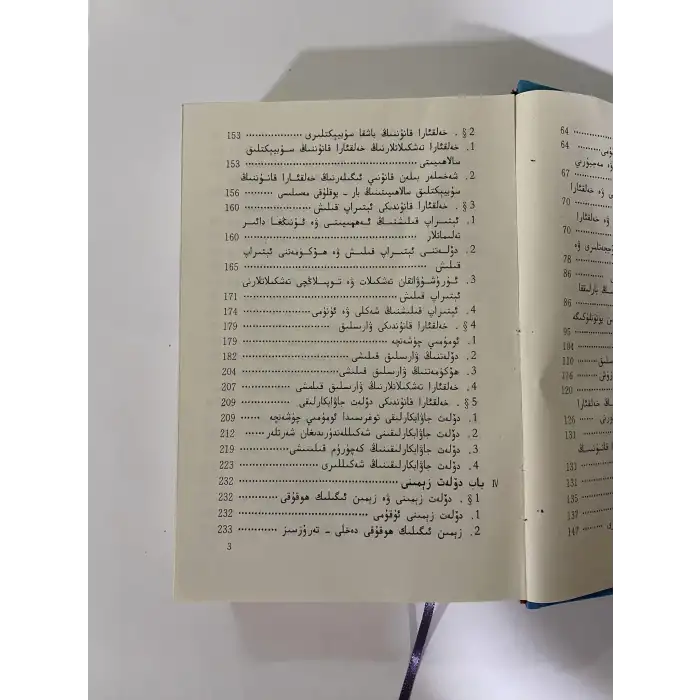 § 2 . خەلقئارا قانۇننىڭ باشقا سۇبيېكتلىرى ................... 153
1. خەلقئارا تەشكىلاتلارنىڭ خەلقئارا قانۇننىڭ سۇبيېكتلىق
سالاھىيىتى ................... 153
2. شەخسلەر بىلەن قانۇنىي ئىگىلەرنىڭ خەلقئارا قانۇننىڭ
سۇبيېكتلىق سالاھىيىتىنىڭ بار - يوقلۇقى مەسىلىسى ......... 156
§ 3 . خەلقئارا قانۇندىكى ئېتىراپ قىلىش ................... 160
1. ئېتىراپ قىلىشنىڭ ئەھمىيىتى ۋە ئۇنىڭغا دائىر
تەلىماتلار ................... 160
2. دۆلەتنى ئېتىراپ قىلىش ۋە ھۆكۈمەتنى ئېتىراپ
قىلىش ................... 165
3. ئۇرۇشۇۋاتقان تەشكىلات ۋە توپىلاڭچى تەشكىلاتلارنى
ئېتىراپ قىلىش ................... 171
4. ئېتىراپ قىلىشنىڭ شەكلى ۋە ئۈنۈمى ................... 174
§ 4 . خەلقئارا قانۇندىكى ۋارىسلىق ................... 179
1. ئومۇمىي چۈشەنچە ................... 179
2. دۆلەتنىڭ ۋارىسلىق قىلىشى ................... 182
3. ھۆكۈمەتنىڭ ۋارىسلىق قىلىشى ................... 204
4. خەلقئارا تەشكىلاتلارنىڭ ۋارىسلىق قىلىشى ............ 207
§ 5 . خەلقئارا قانۇندىكى دۆلەت جاۋابكارلىقى ............... 209
1. دۆلەت جاۋابكارلىقى توغرىسىدا ئومۇمىي چۈشەنچە ...... 209
2. دۆلەت جاۋابكارلىقىنى شەكىللەندۈرىدىغان شەرتلەر ...... 212
3. دۆلەت جاۋابكارلىقىنىڭ كەچۈرۈم قىلىنىشى ............ 219
4. دۆلەت جاۋابكارلىقىنىڭ شەكىللىرى ................... 223
IV باب دۆلەت زېمىنى ................... 232
§ 1 . دۆلەت زېمىنى ۋە زېمىن ئىگىلىك ھوقۇقى ............ 232
1. دۆلەت زېمىنى ئۇقۇمى ................... 232
2. زېمىن ئىگىلىك ھوقۇقى دەخلى - تەرۇزسىز ............ 233
3
64
64
67
ۋە خەلقئارا
70
70
78
86
86
95
104
110
116
120
126
131
131
131
135
137
147